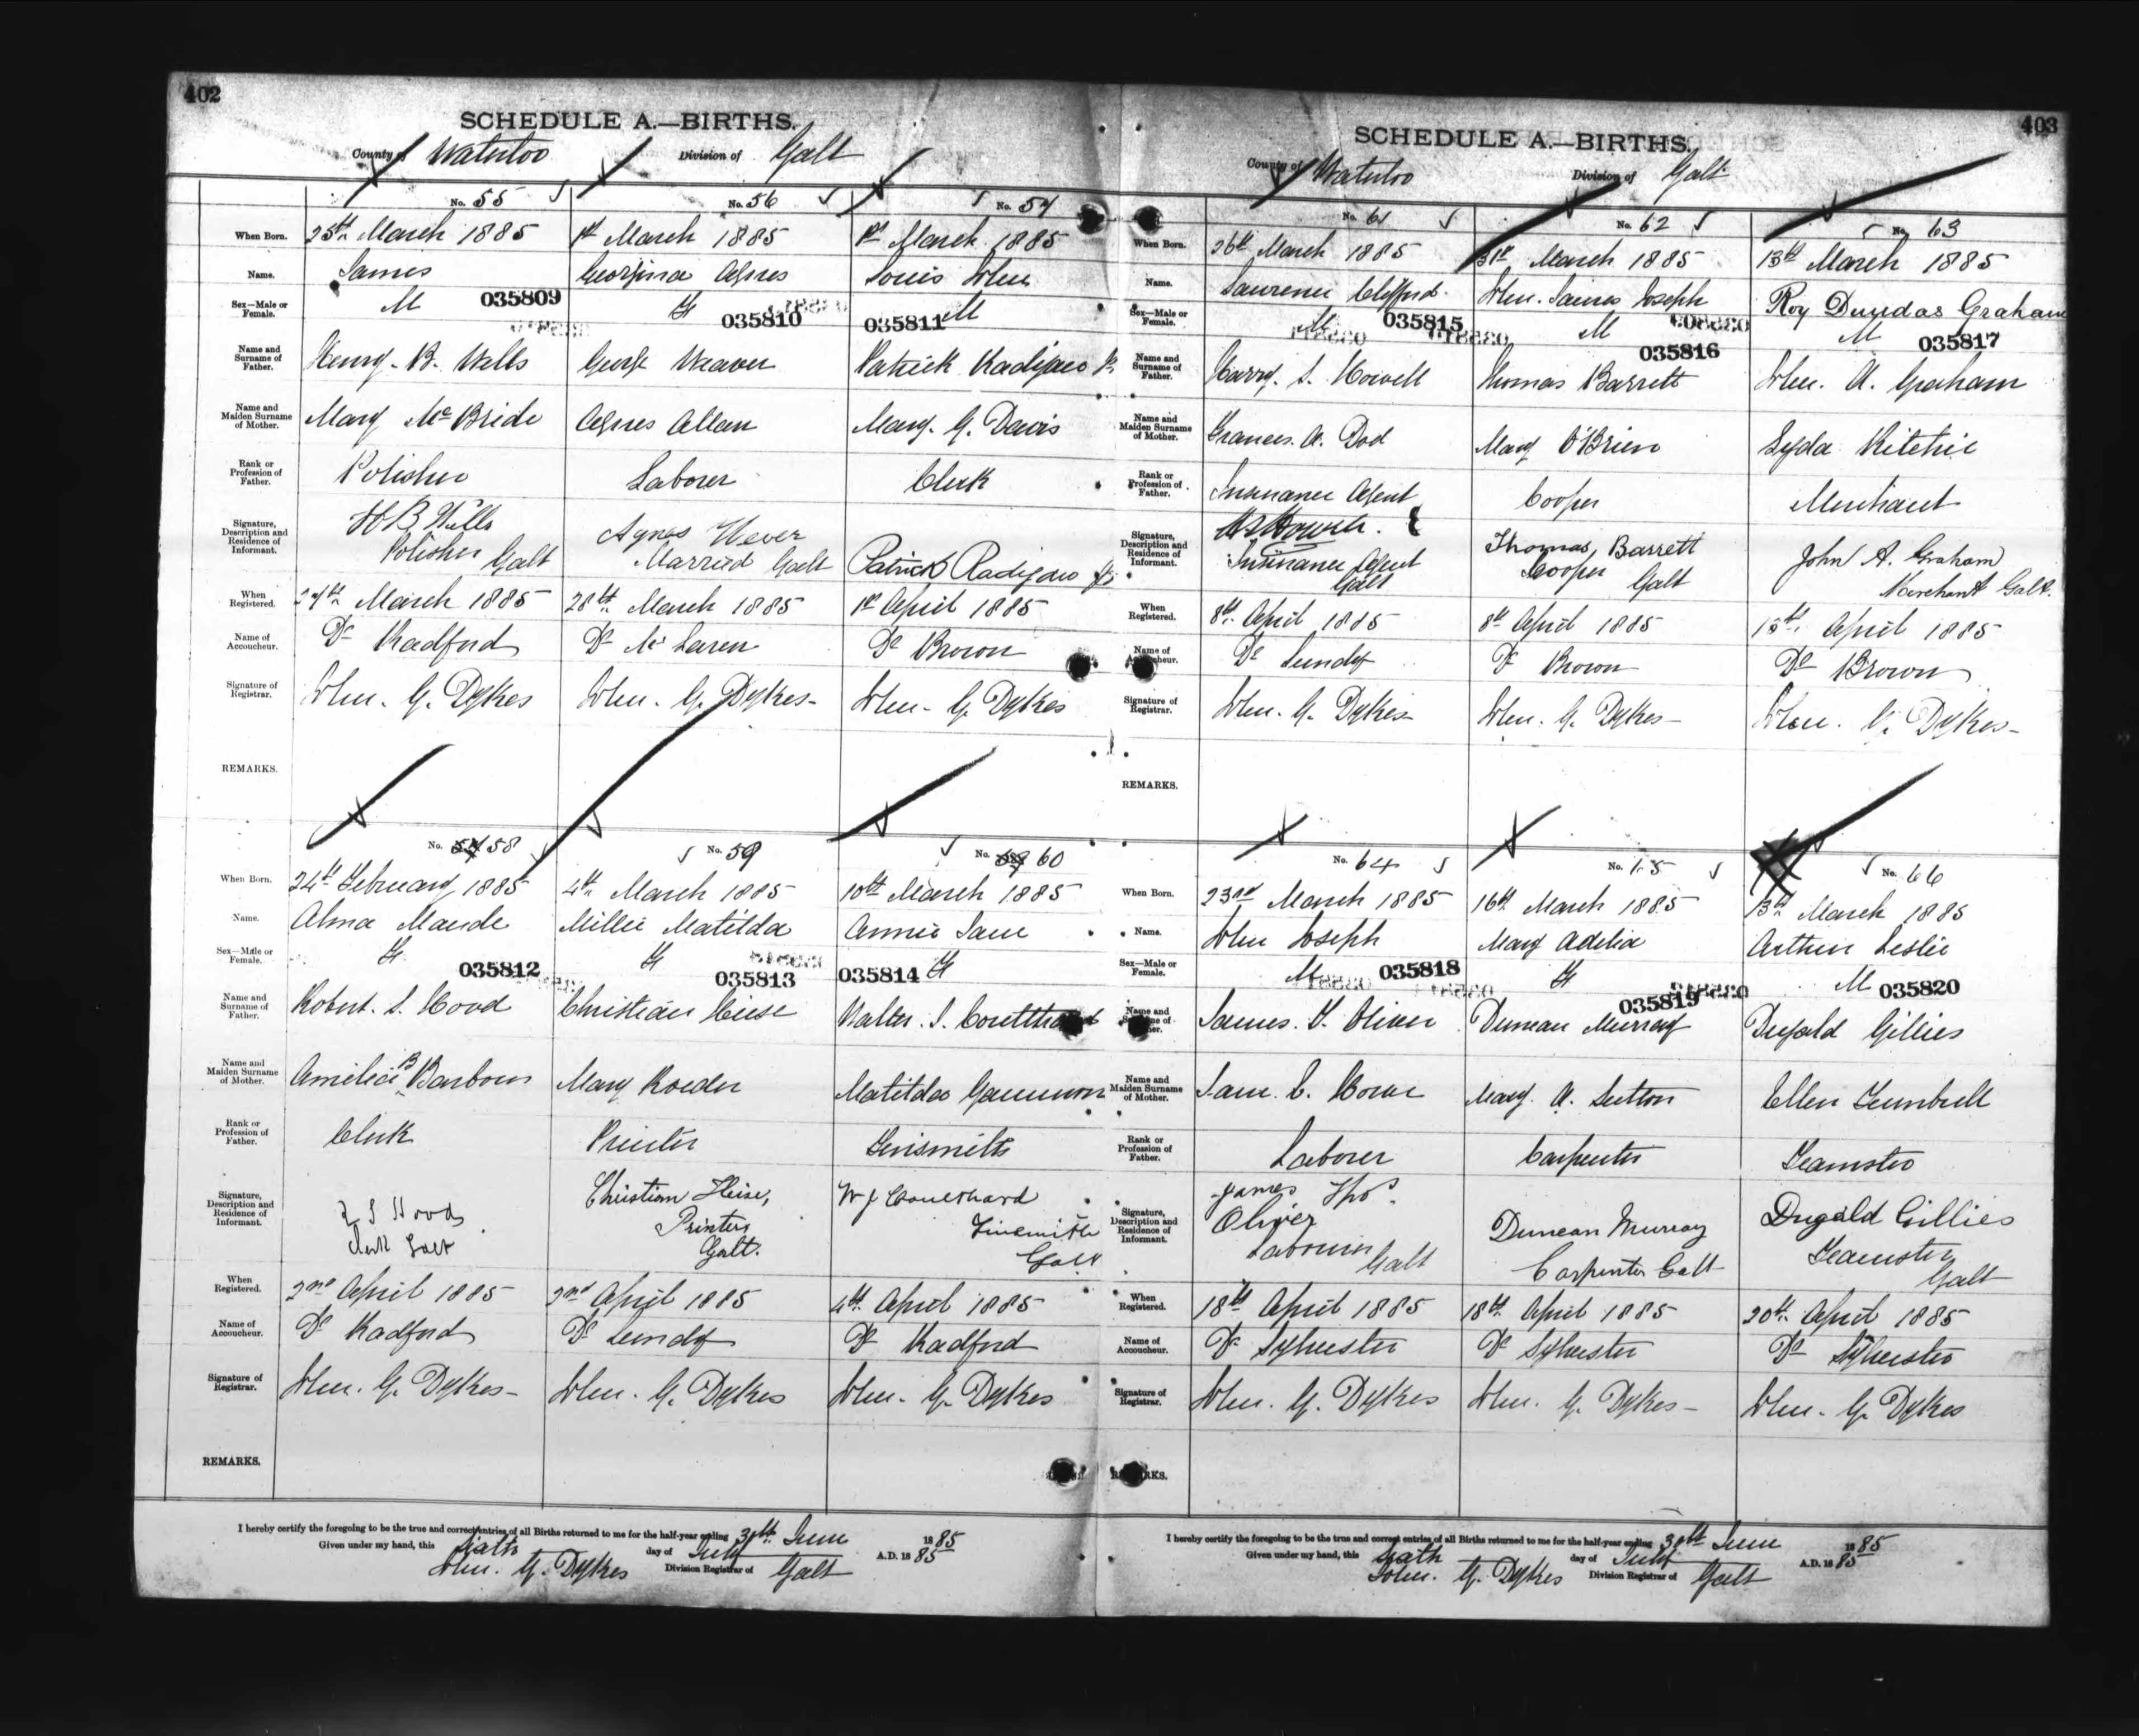 402
SCHEDULE A.—BIRTHS.
County of Waterloo Division of Galt
No. 55 No. 56 No. 57
When Born. 25th March 1885 1st March 1885 1st March 1885
Name. James Georgina Agnes Louis Wm
Sex—Male or Female. M F M
035809 035810 035811
Name and Surname of Father. Henry. B. Wells George Weaver Patrick Radigan Jr.
Name and Maiden Surname of Mother. Mary McBride Agnes Allan Mary. G. Davis
Rank or Profession of Father. Polisher Laborer Clerk
Signature, Description and Residence of Informant. H B Wells Polisher Galt Agnes Wever Married Galt Patrick Radigan Jr
When Registered. 27th March 1885 28th March 1885 1st April 1885
Name of Accoucheur. Dr Radford Dr McLaren Dr Brown
Signature of Registrar. Wm. G. Dykes Wm. G. Dykes- Wm- G Dykes
REMARKS.
No. 58 No. 59 No. 60
When Born. 24th February 1885 4th March 1885 10th March 1885
Name. Alma Maude Millie Matilda Annie Jane
Sex—Male or Female. F F F
035812 035813 035814
Name and Surname of Father. Robert. S. Hood Christian Heise Walter. J. Coulthard
Name and Maiden Surname of Mother. Amelia B Barbour Mary Roeder Matilda Gammon
Rank or Profession of Father. Clerk Printer Tinsmith
Signature, Description and Residence of Informant. R S Hood Clerk Galt Christian Heise, Printer, Galt. W J Coulthard Tinsmith Galt
When Registered. 2nd April 1885 2nd April 1885 4th April 1885
Name of Accoucheur. Dr Radford Dr Lundy Dr Radford
Signature of Registrar. Wm. G. Dykes- Wm. G. Dykes Wm- G Dykes
REMARKS.
I hereby certify the foregoing to be the true and correct entries of all Births returned to me for the half-year ending 30th June 1885
Given under my hand, this Sixth day of July A.D. 1885
Wm. G. Dykes Division Registrar of Galt
403
SCHEDULE A.—BIRTHS.
County of Waterloo Division of Galt
No. 61 No. 62 No. 63
When Born. 26th March 1885 31st March 1885 13th March 1885
Name. Laurence Clifford. Wm. James Joseph Roy Dundas Graham
Sex—Male or Female. M M M
035815 035816 035817
Name and Surname of Father. Harry. S. Howell Thomas Barrett Wm. A. Graham
Name and Maiden Surname of Mother. Frances. A. Dod Mary O'Brien Lyda Ritchie
Rank or Profession of Father. Insurance Agent Cooper Merchant
Signature, Description and Residence of Informant. H S Howell. Insurance Agent Galt Thomas, Barrett Cooper Galt John A. Graham Merchant Galt.
When Registered. 8th April 1885 8th April 1885 13th April 1885
Name of Accoucheur. Dr Lundy Dr Brown Dr Brown
Signature of Registrar. Wm. G. Dykes- Wm. G. Dykes- Wm. G. Dykes-
REMARKS.
No. 64 No. 65 No. 66
When Born. 23rd March 1885 16th March 1885 13th March 1885
Name. Wm Joseph Mary Adelia Arthur Leslie
Sex—Male or Female. M F M
035818 035819 035820
Name and Surname of Father. James. T. Oliver Duncan Murray Dugald Gillies
Name and Maiden Surname of Mother. Jane. C. Mary. A. Sutton Ellen Turnbull
Rank or Profession of Father. Laborer Carpenter Teamster
Signature, Description and Residence of Informant. James Thos. Oliver Labourer Galt Duncan Murray Carpenter Galt Dugald Gillies Teamster Galt
When Registered. 18th April 1885 18th April 1885 20th April 1885
Name of Accoucheur. Dr Sylvester Dr Sylvester Dr Sylvester
Signature of Registrar. Wm. G. Dykes Wm. G. Dykes- Wm- G Dykes
REMARKS.
I hereby certify the foregoing to be the true and correct entries of all Births returned to me for the half-year ending 30th June 1885
Given under my hand, this Sixth day of July A.D. 1885
Wm. G. Dykes Division Registrar of Galt